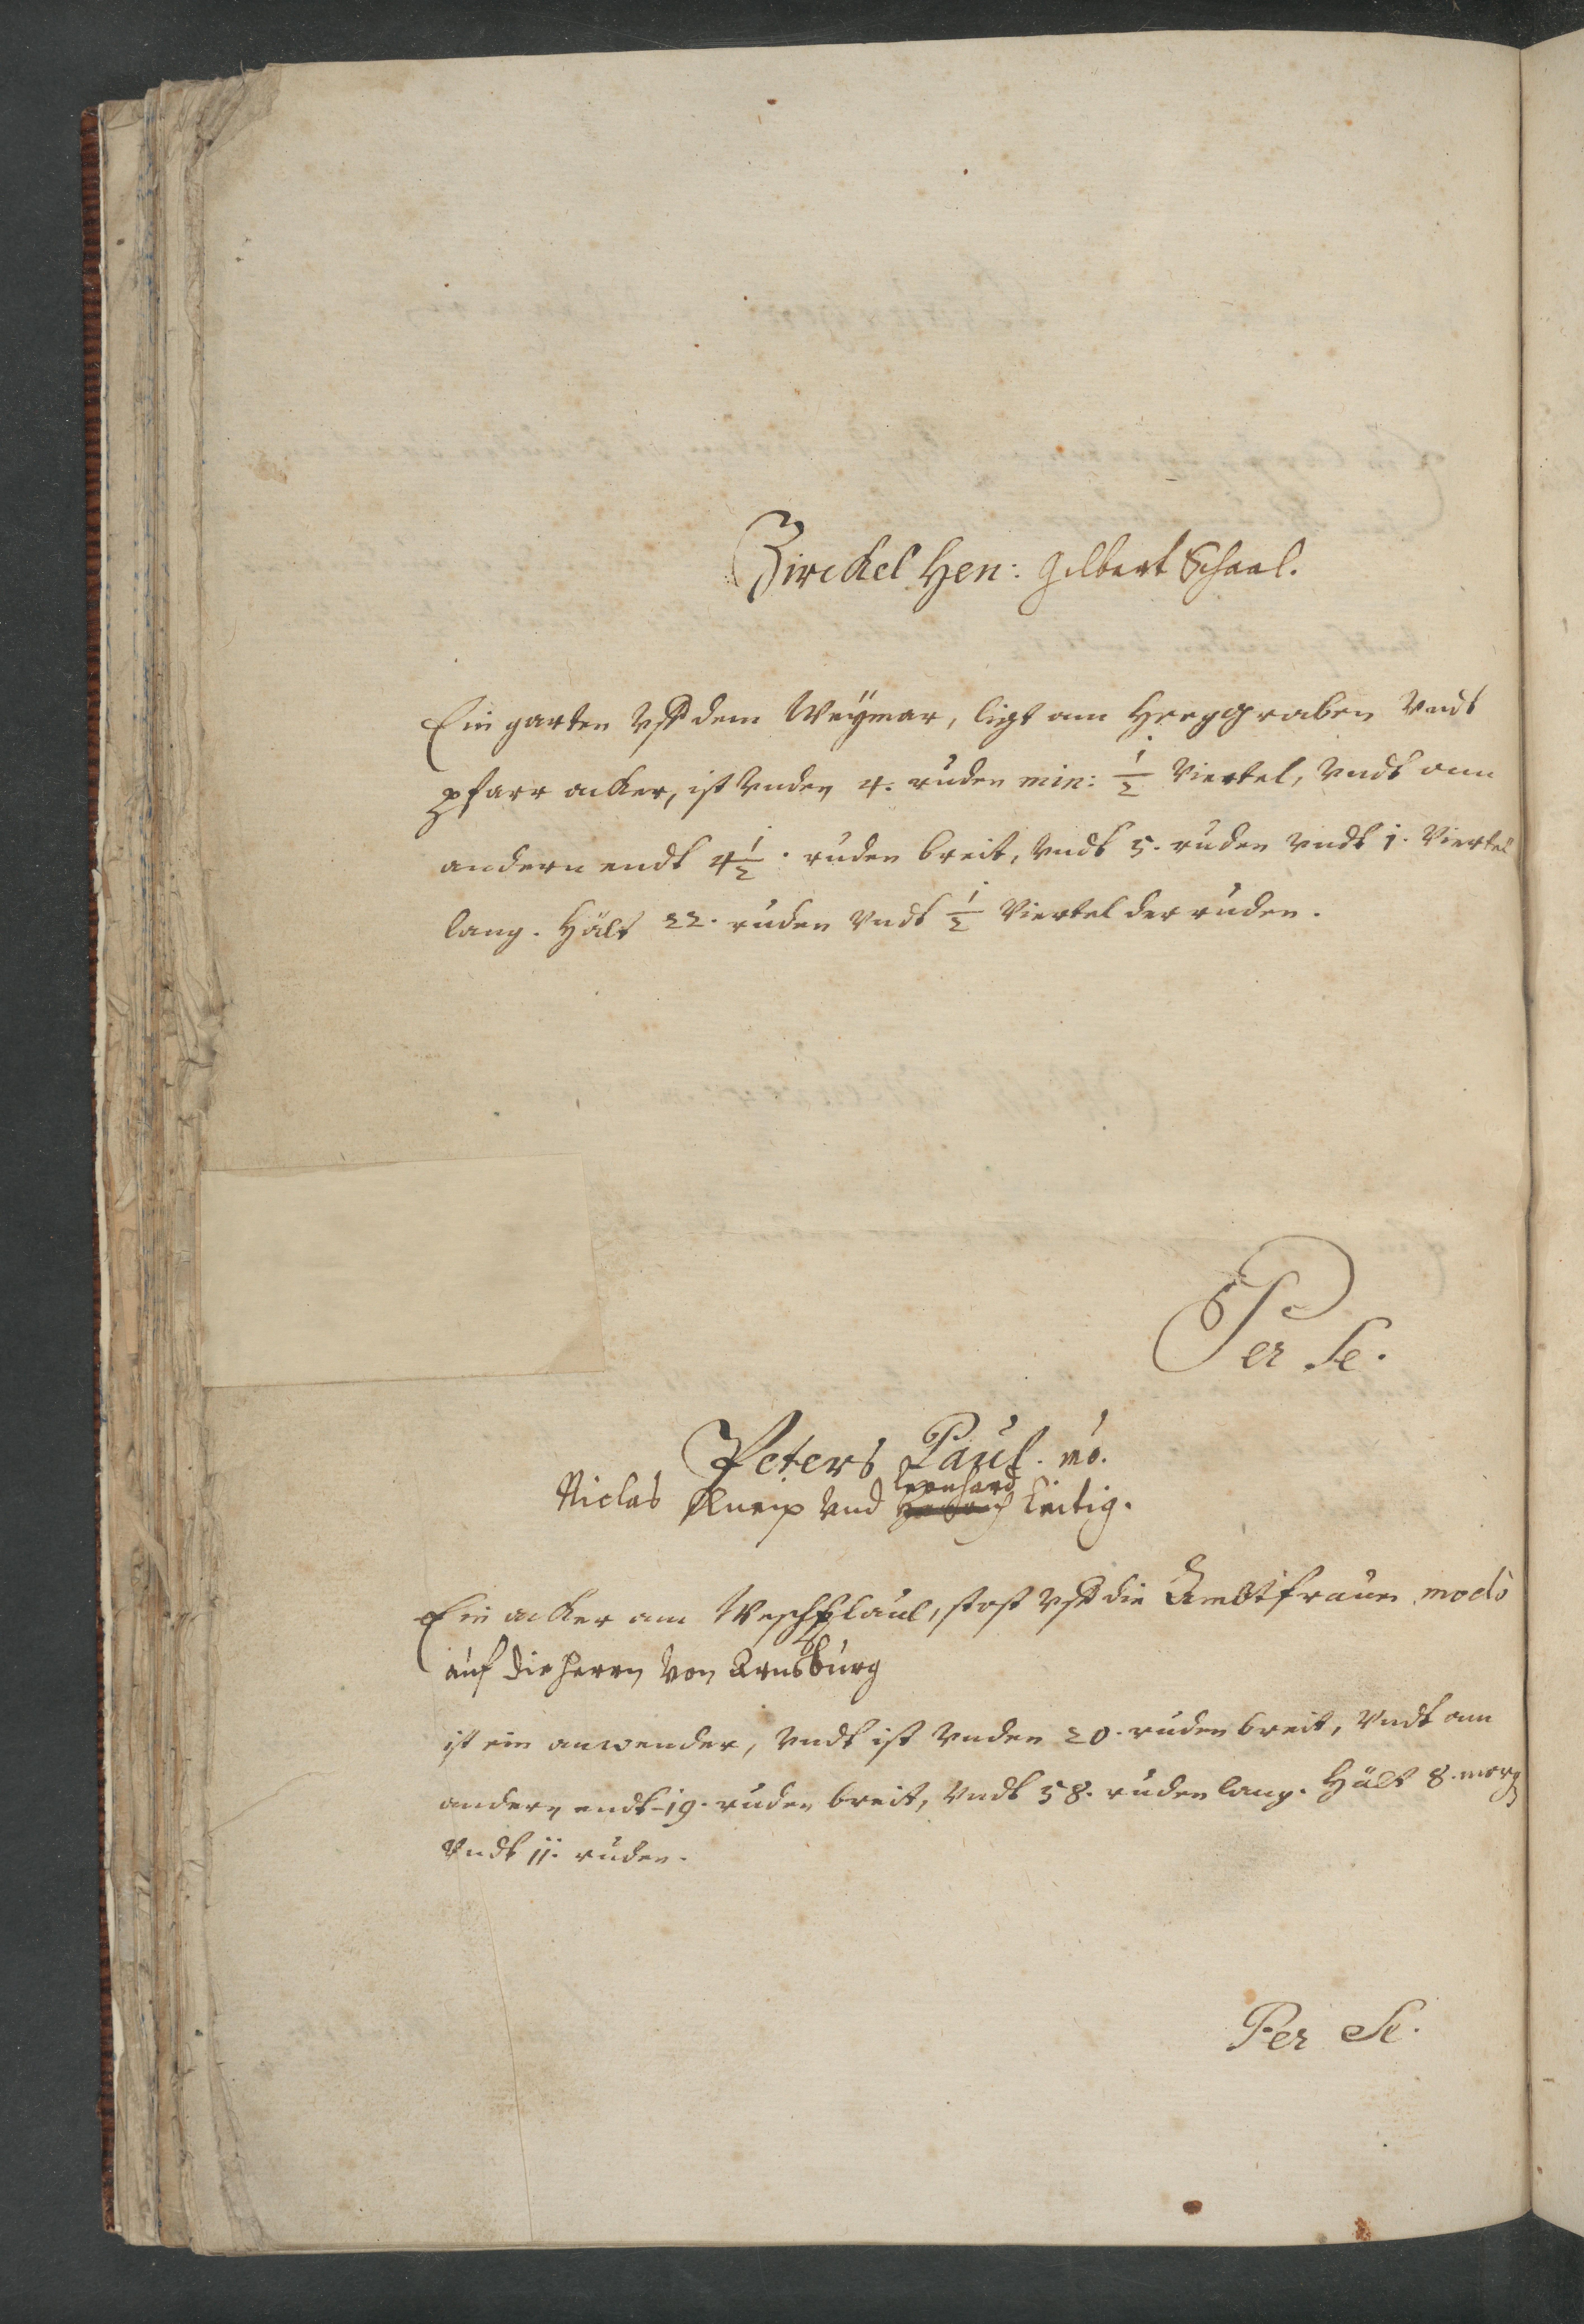 Zirckel Hen: Gilbert Schaal.
Ein garten Vff dem Weÿmar, ligt am Heeggraben Vndt
pfarr acker, ist Vnden 4. ruden min: 1/2 Viertel, Vndt am
andern endt 4 1/2. ruden breit, Vndt 5. ruden Vndt 1. Viertel
lang. Hält 22. ruden Vndt 1/2 Viertel der ruden.
Per Se.
Peters Paul. mo.
Leonhard
Niclas Kneip Vnd Leitig.
Ein acker am, stost Vff die Ambtfrauen modò
auf die herrn Von Arnsburg
ist ein anwender, Vndt ist Vnden 20. ruden breit, Vndt am
andern endt 19. ruden breit, Vndt 58. ruden lang. Hält 8. morg
Vndt 11. ruden.
Per Se.